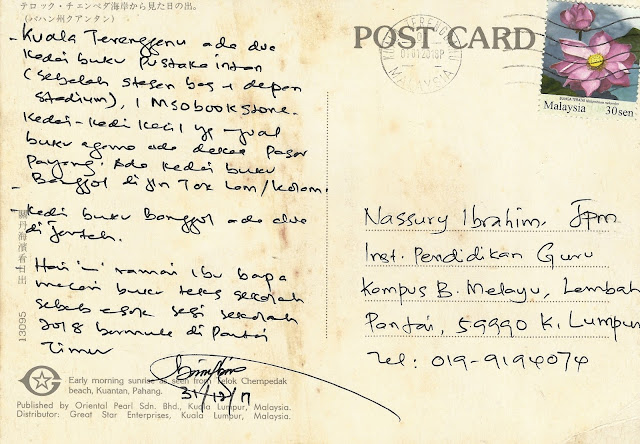 テロック・チェンペダ海岸から見た日の出。
(パハン州クアンタン)
- Kuala Terengganu ada dua
kedai buku Pustaka intan
(sebelah stesen bas & depan
stadium), 1 MSO bookstore.
Kedai-kedai kecil yg jual
buku agama ada dekat Pasar
Payang. Ada kedai buku
Banggol di jln Tok Lam/Kolam.
- Kedai buku Banggol ada dua
di Jerteh.
Hari ini ramai ibu bapa
mencari buku teks sekolah
sebab esok sesi sekolah
2018 bermula di Pantai
Timur
31/12/17
關丹海濱看日出
13095
Early morning sunrise as seen from Telok Chempedak
beach, Kuantan, Pahang.
Published by Oriental Pearl Sdn. Bhd., Kuala Lumpur, Malaysia.
Distributor: Great Star Enterprises, Kuala Lumpur, Malaysia.
POST CARD
MALAYSIA
Malaysia 30 sen
Nassury Ibrahim, Jpm
Inst. Pendidikan Guru
Kampus B. Melayu, Lembah
Pantai, 59990 K. Lumpur
Tel: 019-9194074